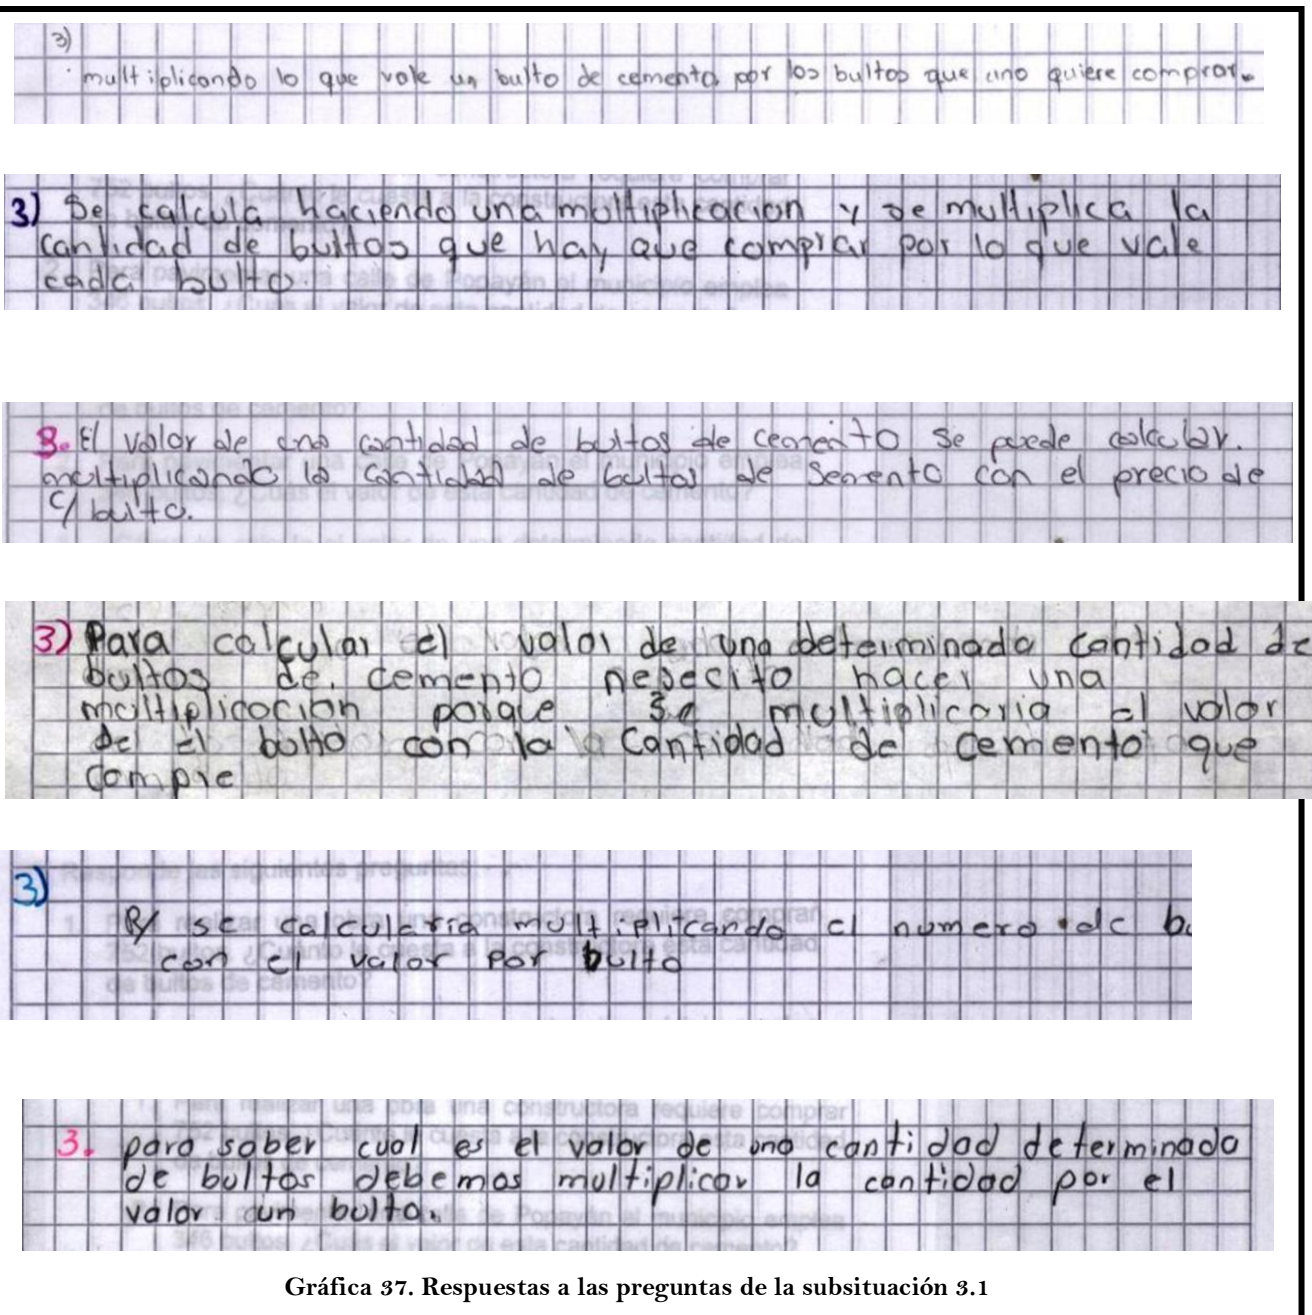 3)
multiplicando lo que vale un bulto de cemento por los bultos que uno quiere comprar.
3) Se calcula haciendo una multiplicacion y se multiplica la
cantidad de bultos que hay que comprar por lo que vale
cada bulto.
3. El valor de una cantidad de bultos de cemento se puede calcular.
multiplicando la cantidad de bultos de Semento con el precio de
c/ bulto.
3) Para calcular el valor de una determinada cantidad de
bultos de cemento nesecito hacer una
multiplicacion porque se multiplicaria el valor
de el bulto con la cantidad de cemento que
compre
3)
R/ se calcularia multiplicando el numero de bu
con el valor por bulto
3. para saber cual es el valor de una cantidad determinada
de bultos debemos multiplicar la cantidad por el
valor aun bulto.
Gráfica 37. Respuestas a las preguntas de la subsituación 3.1